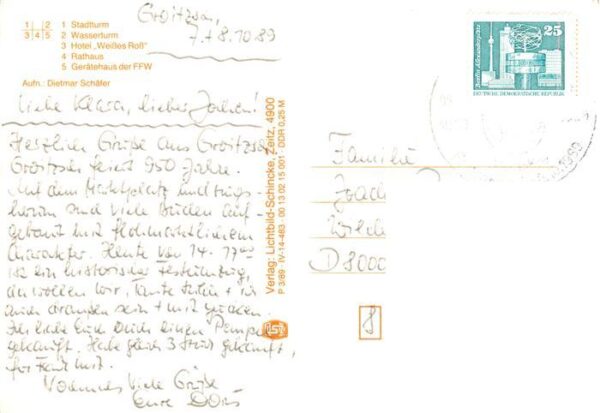 1 | 2 1 Stadtturm
3 | 4 | 5 2 Wasserturm
3 Hotel „Weißes Roß"
4 Rathaus
5 Gerätehaus der FFW
Aufn.: Dietmar Schäfer
Groitzsch,
7. + 8.10.89
Liebe Klara, lieber Jochen!
Herzliche Grüße aus Groitzsch
Groitzsch feiert 950 Jahre.
Auf dem Marktplatz und rings-
herum sind viele Buden auf-
gebaut mit flohmarktlichem
Charakter. Heute von 14 - 17 00
ist ein historischer Festumzug,
da wollen wir, Tante + ich
auch draußen sein + mit gucken.
Ich habe Euch einen
gekauft. Habe gleich 3 Stück gekauft,
für mit.
Nochmals viele Grüße
Eure Doris
Verlag: Lichtbild-Schincke, Zeitz, 4900
P 3/89 · IV-14-483 · 00 13 02 15 001 · DDR 0,25 M
25
Berlin, Alexanderplatz
DEUTSCHE DEMOKRATISCHE REPUBLIK
Familie
Joach
D 8000
8